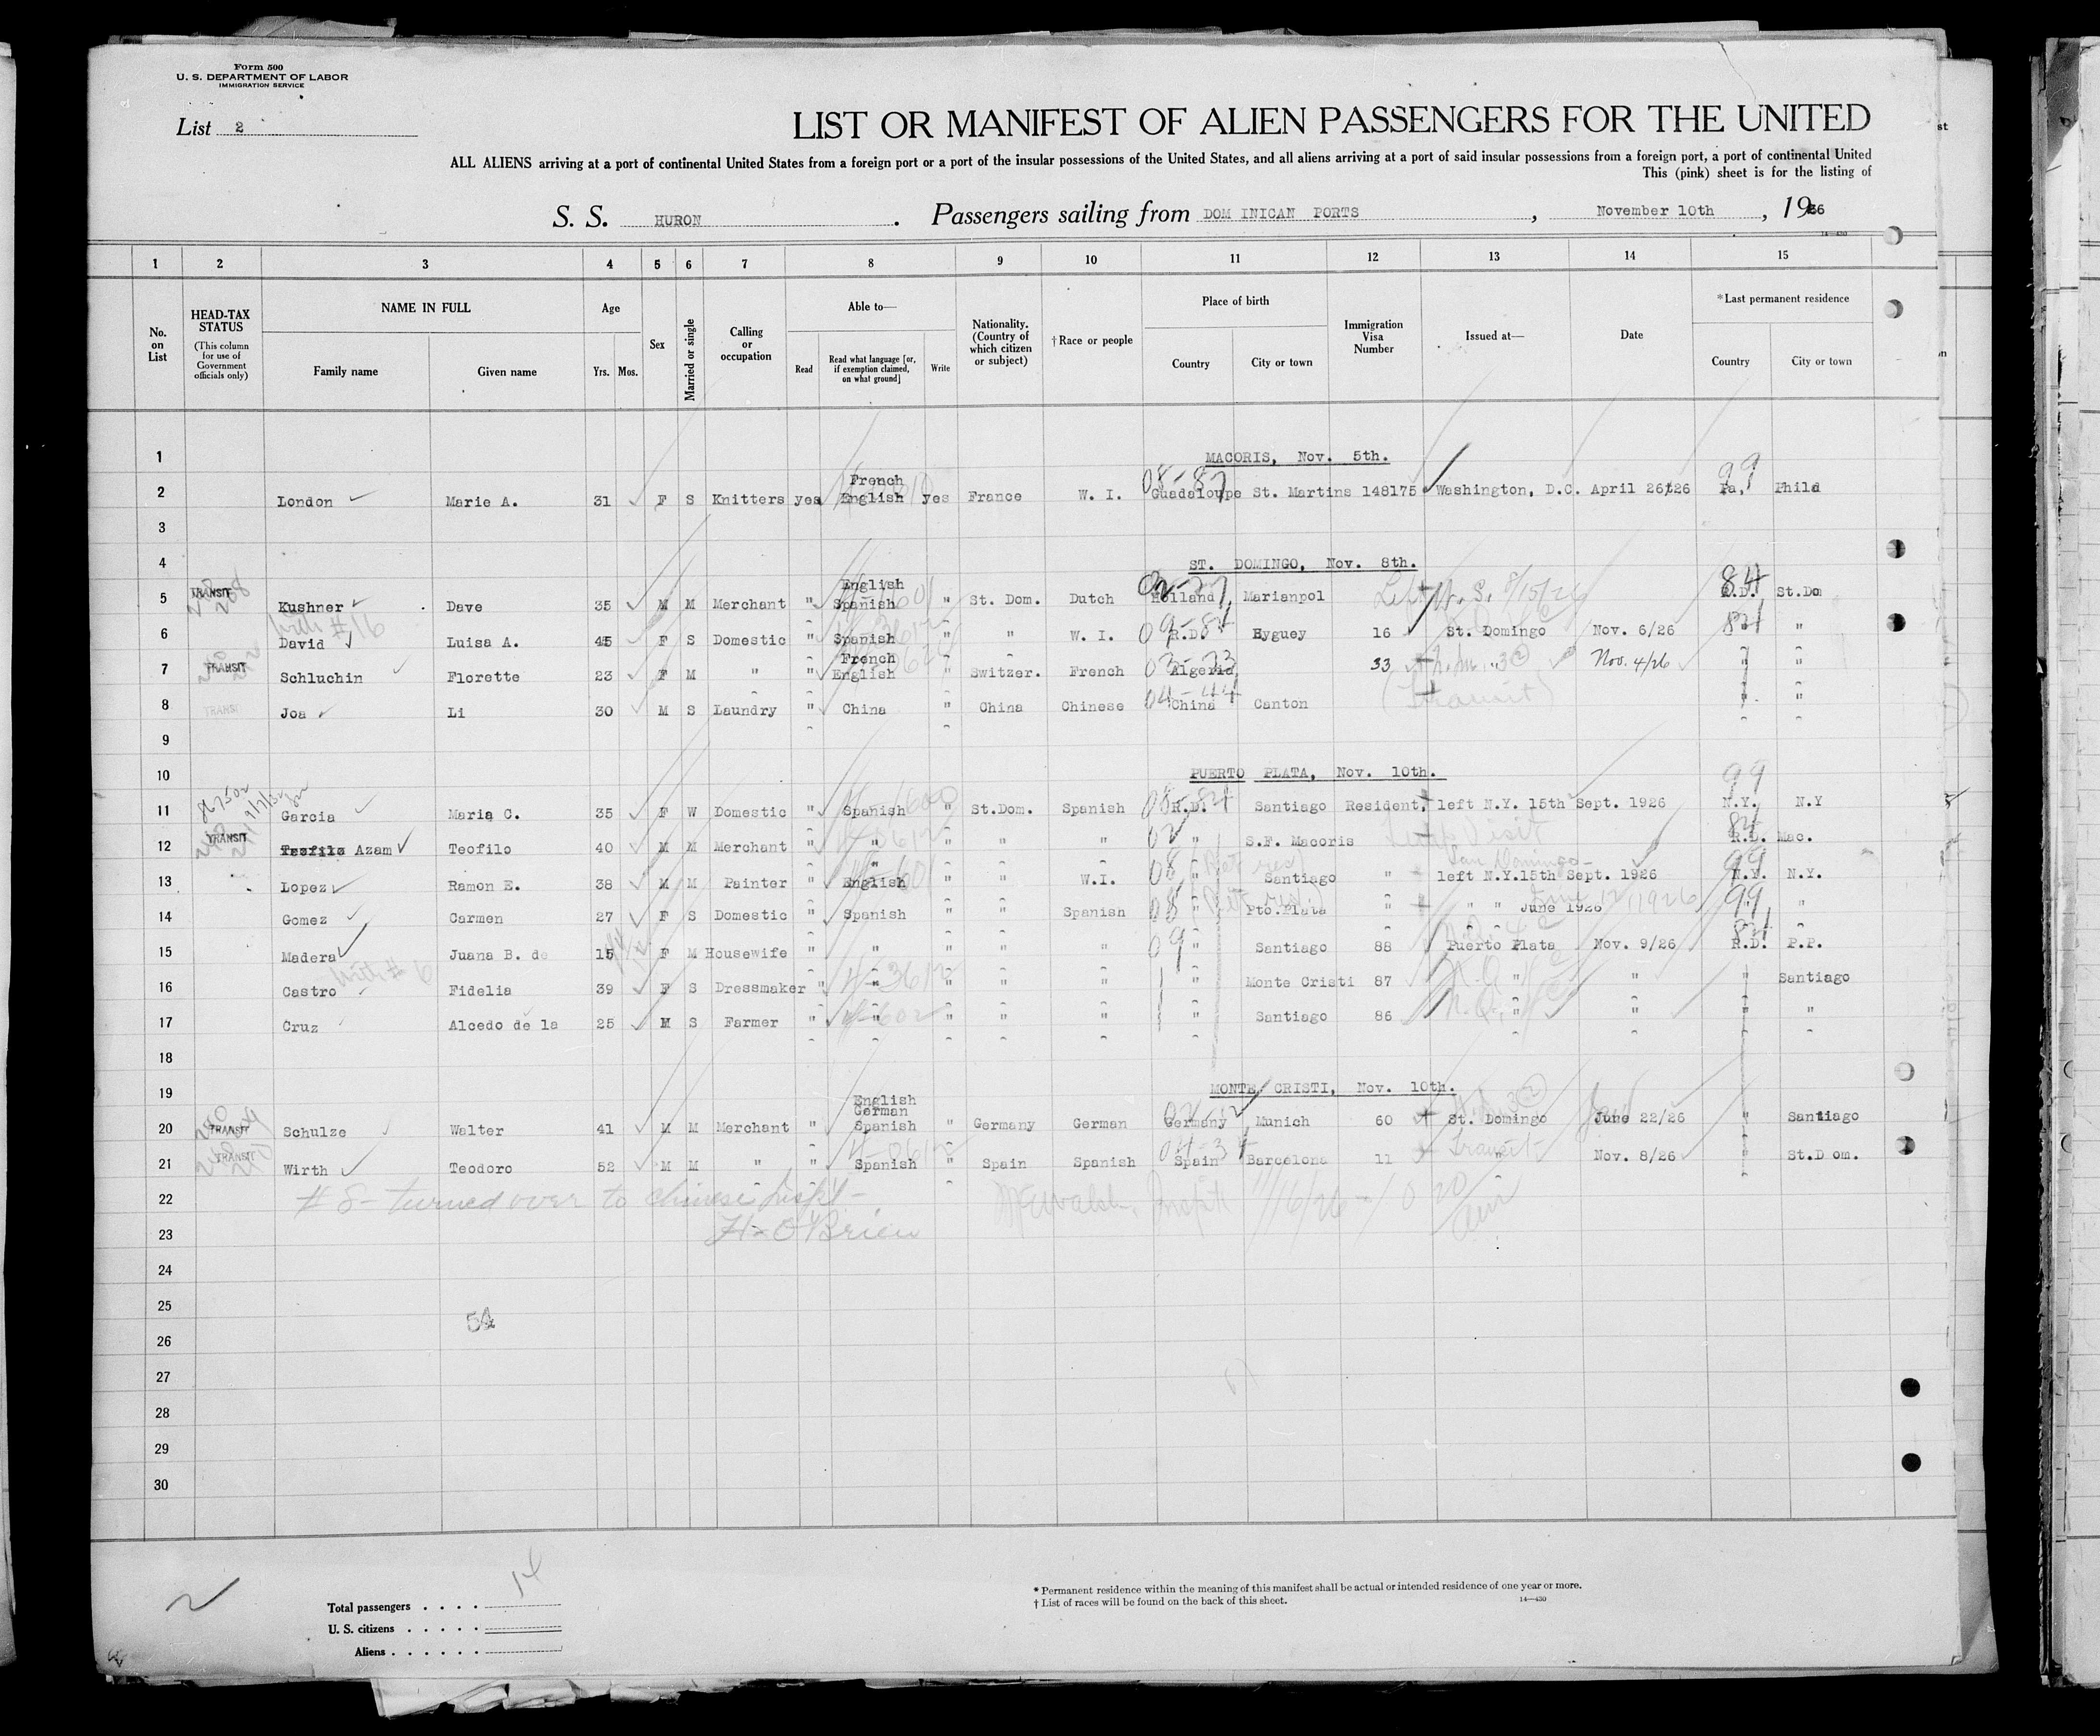 Form 500
U. S. DEPARTMENT OF LABOR
IMMIGRATION SERVICE
List 2
LIST OR MANIFEST OF ALIEN PASSENGERS FOR THE UNITED
ALL ALIENS arriving at a port of continental United States from a foreign port or a port of the insular possessions of the United States, and all aliens arriving at a port of said insular possessions from a foreign port, a port of continental United
This (pink) sheet is for the listing of
S. S. HURON. Passengers sailing from DOM INICAN PORTS, November 10th, 1926
14—430
1 2 3 4 5 6 7 8 9 10 11 12 13 14 15
No. on List
HEAD-TAX STATUS (This column for use of Government officials only)
NAME IN FULL
Family name Given name
Age
Yrs. Mos.
Sex
Married or single
Calling or occupation
Able to—
Read Read what language [or, if exemption claimed, on what ground] Write
Nationality. (Country of which citizen or subject)
†Race or people
Place of birth
Country City or town
Immigration Visa Number
Issued at—
Date
*Last permanent residence
Country City or town
1 MACORIS, Nov. 5th.
2 London Marie A. 31 F S Knitters yes French English yes France W. I. 08-87 Guadaloupe St. Martins 148175 Washington, D.C. April 26/26 99 Pa, Phila
3
4 ST. DOMINGO, Nov. 8th.
5 TRANSIT Kushner Dave 35 M M Merchant " English Spanish " St. Dom. Dutch Holland, Marianpol 8/15/26 84 R.D. St.Do
6 David with #16 Luisa A. 45 F S Domestic " Spanish " " W. I. 09-84 R.D. Hyguey 16 St. Domingo Nov. 6/26 84 " "
7 TRANSIT Schluchin Florette 23 F M " " French English " Switzer. French Algeria, 33 " Nov. 4/26 " "
8 TRANSI Joa Li 30 M S Laundry " China " China Chinese 04-44 China Canton (Transit) " "
9
10 PUERTO PLATA, Nov. 10th.
11 Garcia Maria C. 35 F W Domestic " Spanish " St.Dom. Spanish 08-84 R.D. Santiago Resident, left N.Y. 15th Sept. 1926 99 N.Y. N.Y
12 TRANSIT Azam Teofilo 40 M M Merchant " " " " " 02 " S.F. Macoris 84 R.D. Mac.
13 Lopez Ramon E. 38 M M Painter " " English " " W.I. 08 " Santiago " San Domingo left N.Y.15th Sept. 1926 99 N.Y. N.Y.
14 Gomez Carmen 27 F S Domestic " Spanish " " Spanish 08 " Pto.Plata " " " June 1926 99 " "
15 Madera Juana B. de 15 F M Housewife " " " " " 09 " Santiago 88 Puerto Plata Nov. 9/26 84 R.D. P.P.
16 Castro with # 6 Fidelia 39 F S Dressmaker " " " " " " Monte Cristi 87 " " " Santiago
17 Cruz Alcedo de la 25 M S Farmer " " " " " " Santiago 86 " " " "
18
19 MONTE CRISTI, Nov. 10th.
20 TRANSIT Schulze Walter 41 M M Merchant " English German Spanish " Germany German Germany Munich 60 St. Domingo June 22/26 " Santiago
21 TRANSIT Wirth Teodoro 52 M M " " " Spanish " Spain Spanish 04-34 Spain Barcelona 11 Transit " Nov. 8/26 " St.D om.
22 # 8 - turned over to Chinese Inspt -
23 H- O'Brien
11/16/26
24
25
54
26
27
28
29
30
14
Total passengers . . . .
U. S. citizens . . . . .
Aliens . . . . . .
* Permanent residence within the meaning of this manifest shall be actual or intended residence of one year or more.
† List of races will be found on the back of this sheet.
14—430